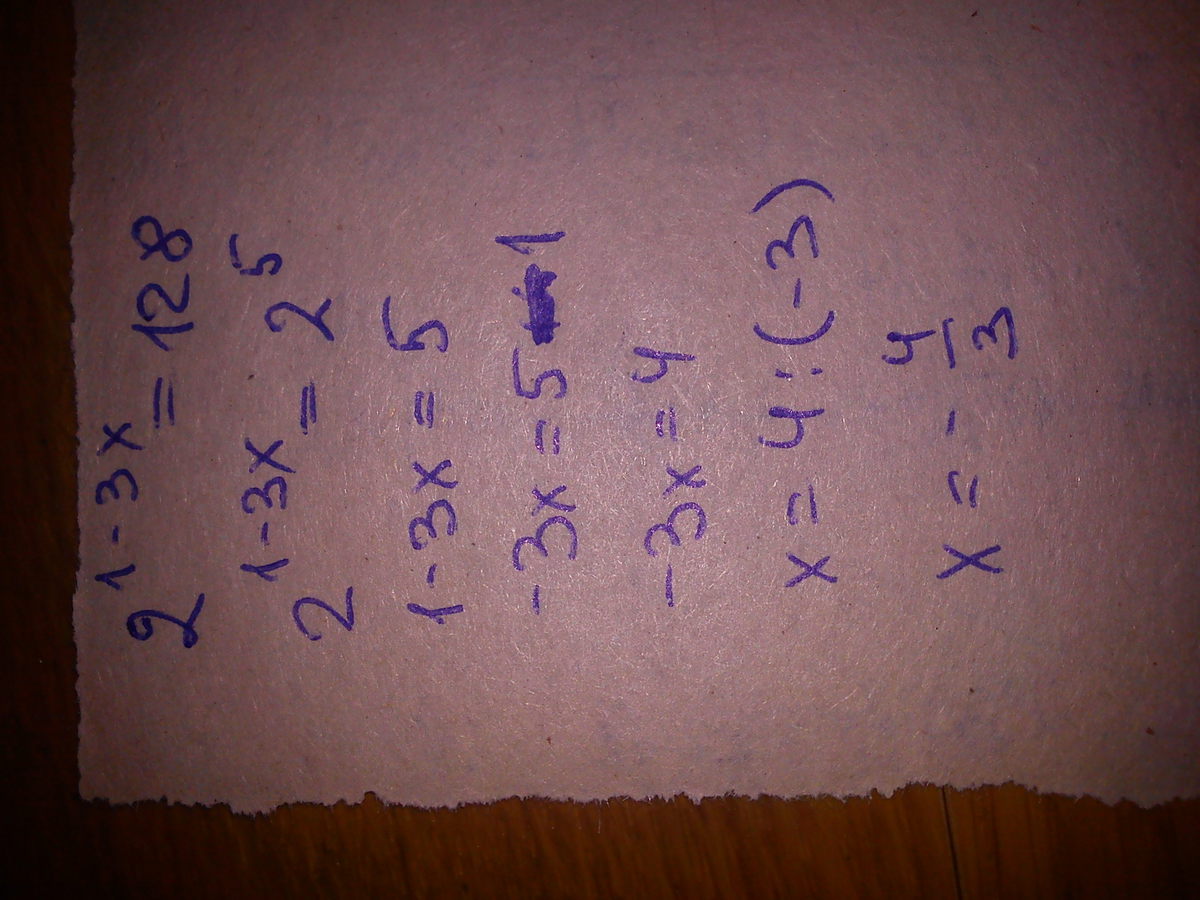 2^{1-3x} = 128
2^{1-3x} = 2^5
1-3x = 5
-3x = 5 1
-3x = 4
x = 4 : (-3)
x = - \frac{4}{3}